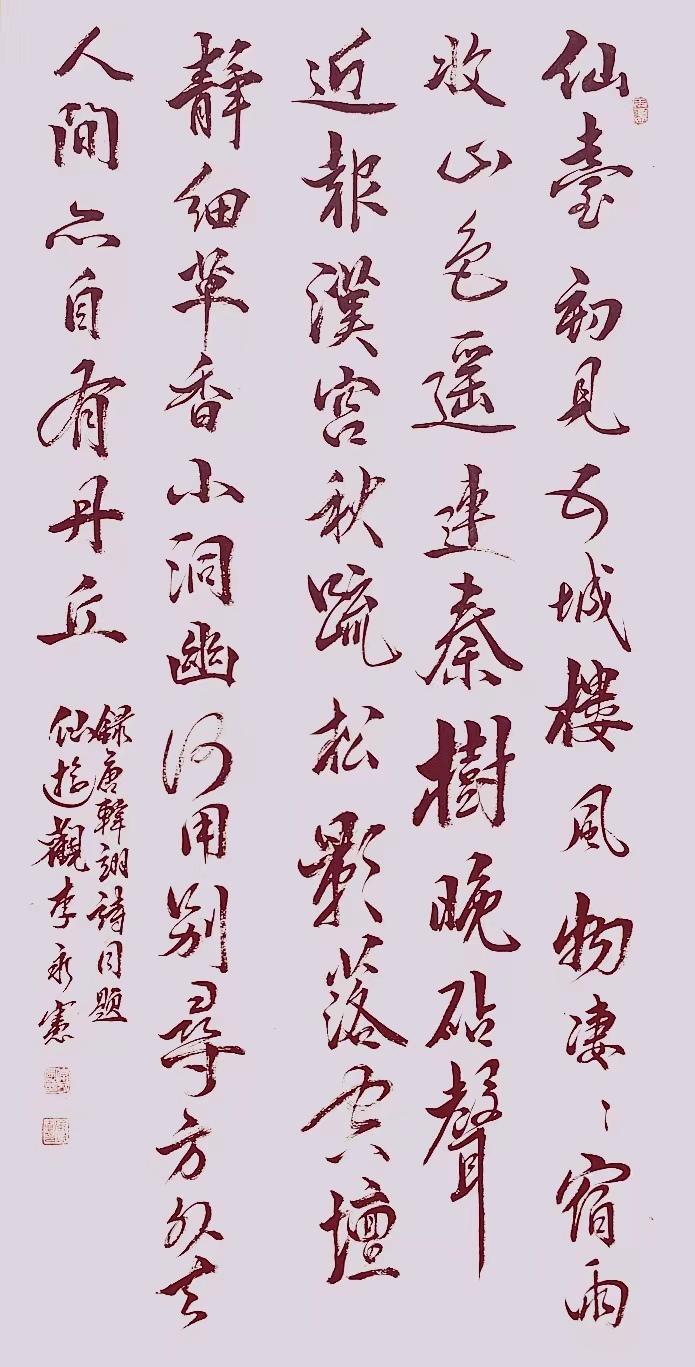 仙臺初見五城樓風物凄〻宿雨
收山色遥連秦樹晚砧聲
近報漢宫秋疏松影落空壇
靜細草香小洞幽何用别尋方外去
人間亦自有丹丘
錄唐韓翃詩同題
仙遊觀李永憲